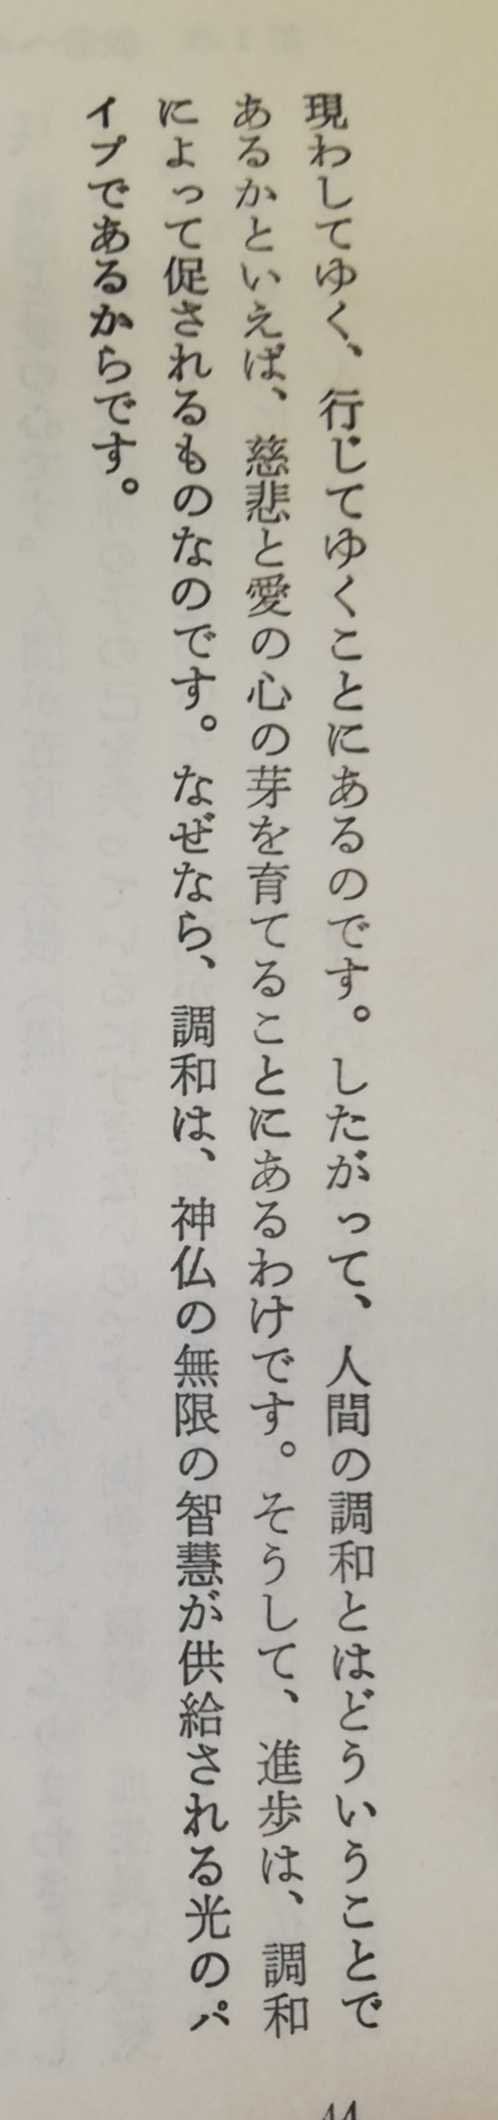 現わしてゆく、行じてゆくことにあるのです。したがって、人間の調和とはどういうことで
あるかといえば、慈悲と愛の心の芽を育てることにあるわけです。そうして、進歩は、調和
によって促されるものなのです。なぜなら、調和は、神仏の無限の智慧が供給される光のパ
イプであるからです。
44